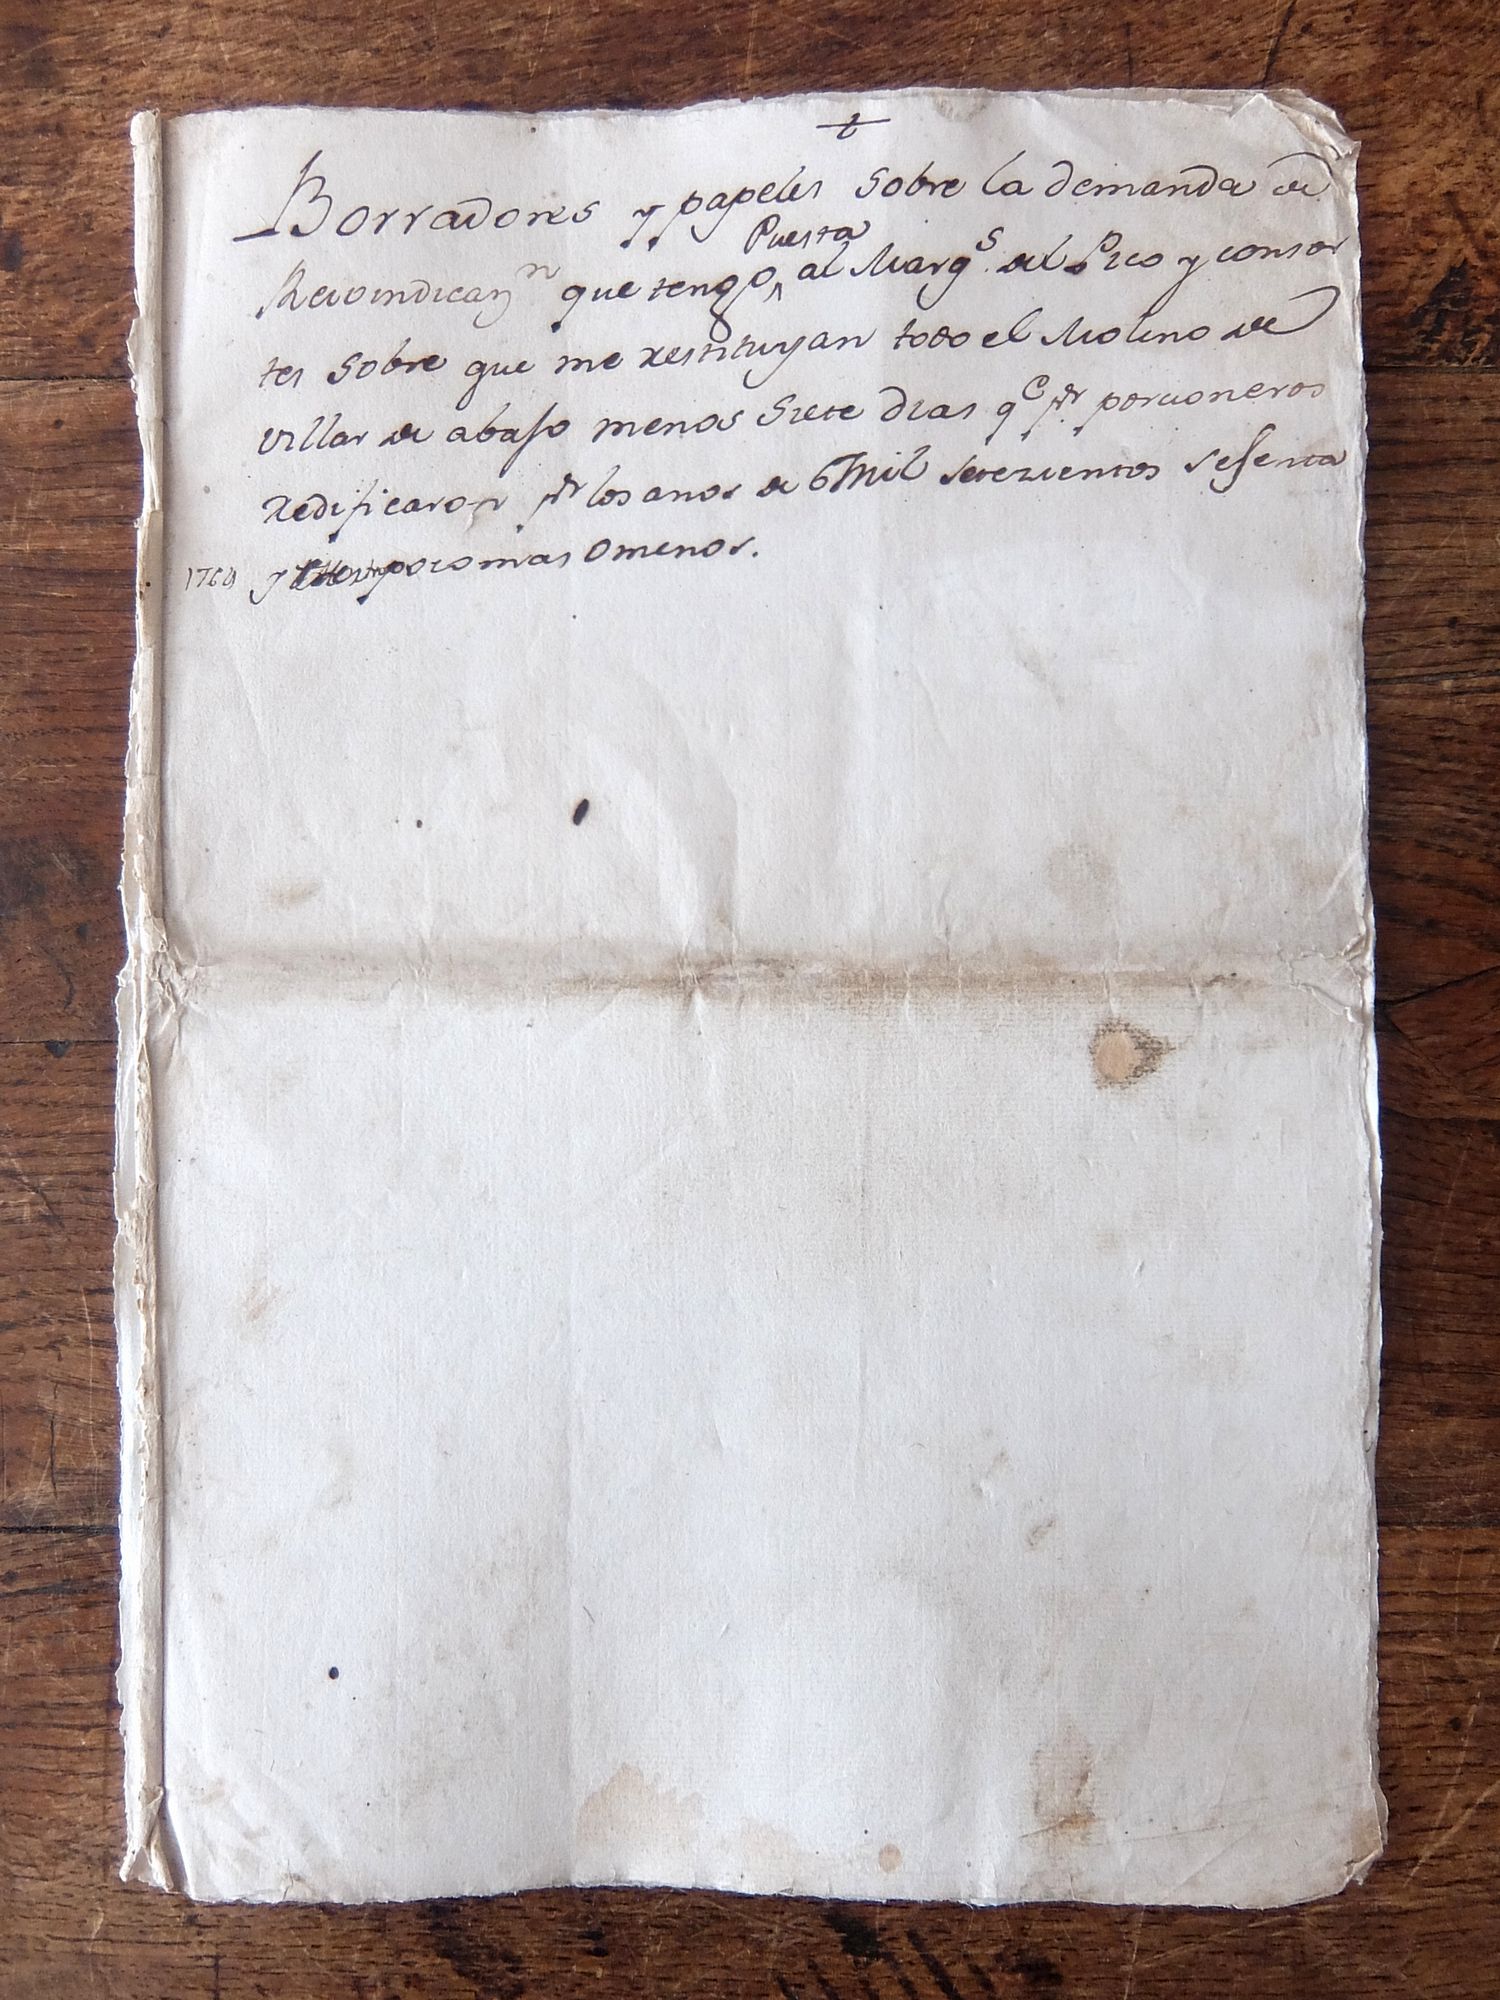 Borradores y papeles sobre la demanda de
Reivindicazn que tengo Puesta al Marqs. del Pico y consor
tes sobre que me restituyan todo el Molino de
villar de abajo menos siete dias qe pr porcioneros
redificaron pr los anos de Mil setezientos sesenta
1764 y poco mas o menos.